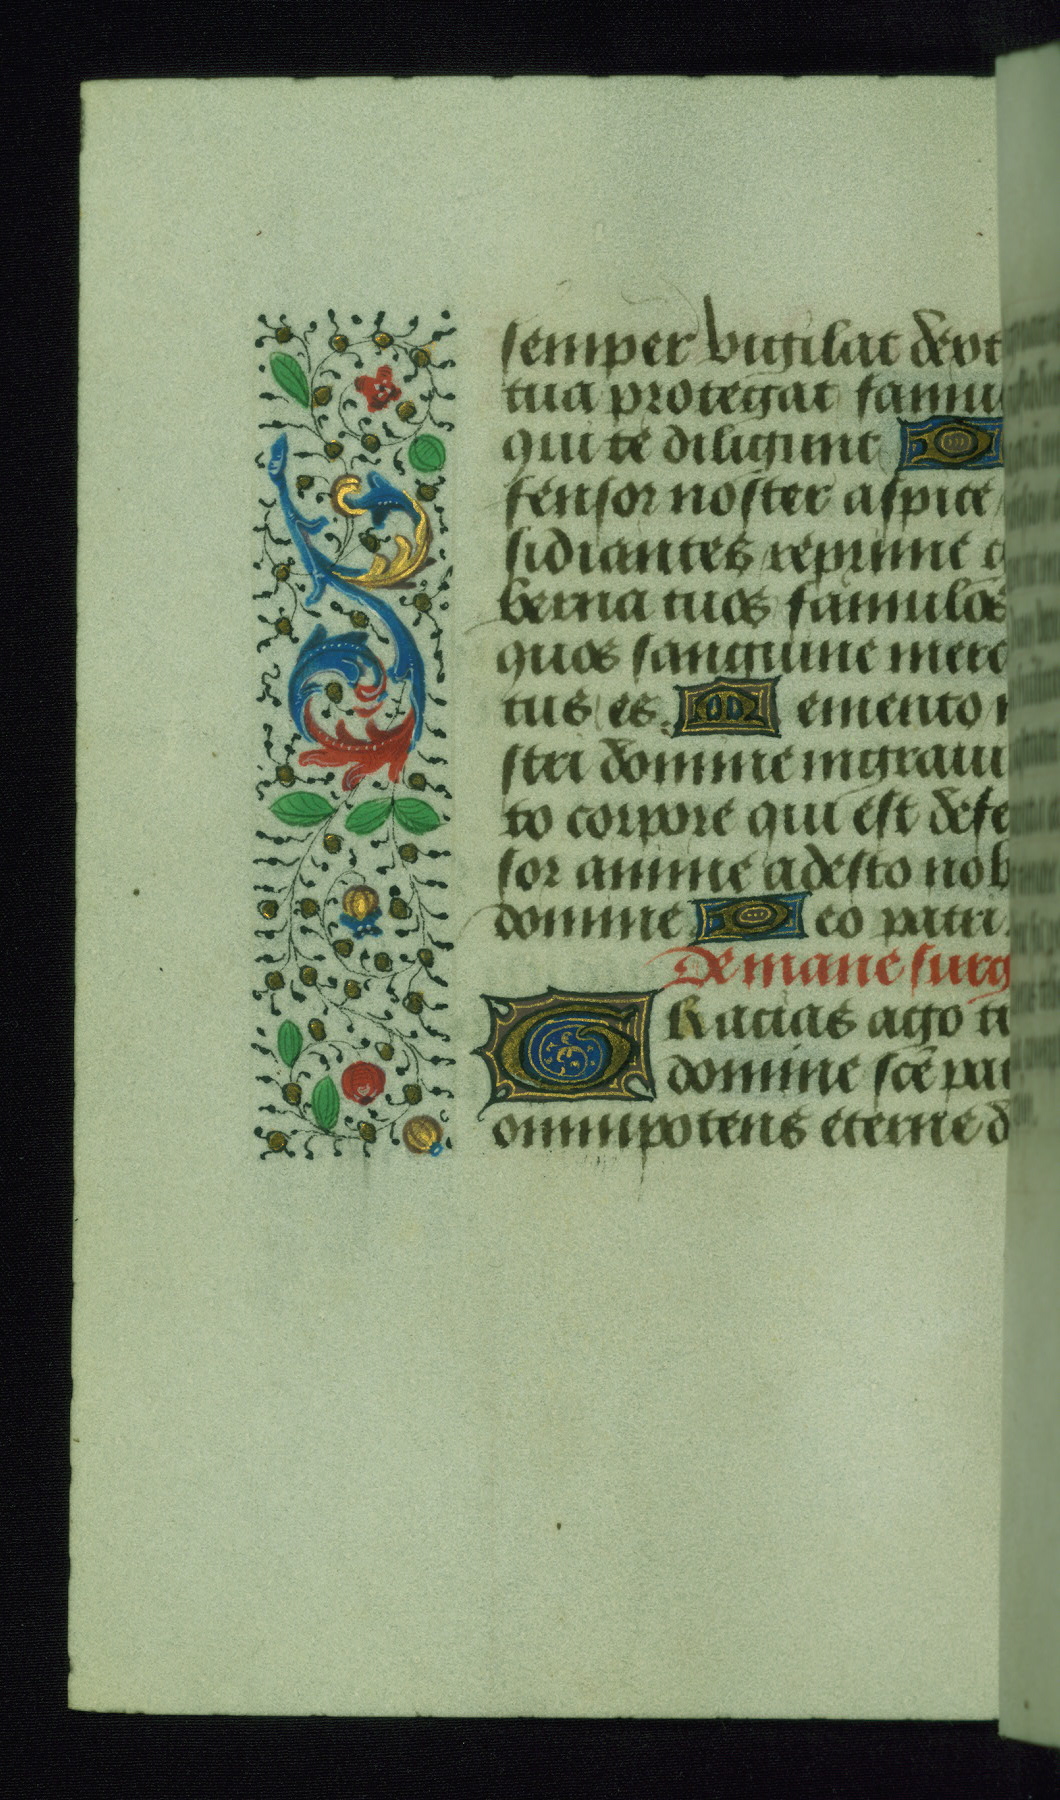 semper vigilat dext
tua protegat famu
qui te diligunt D
fensor noster aspice
sidiantes reprime g
berna tuos famulos
quos sanguine merc
tus es. M emento n
stri domine in graui
to corpore qui est defe
sor anime adesto nob
domine D eo patri.
De mane surg
Gracias ago ti
domine sce pat
omnipotens eterne d